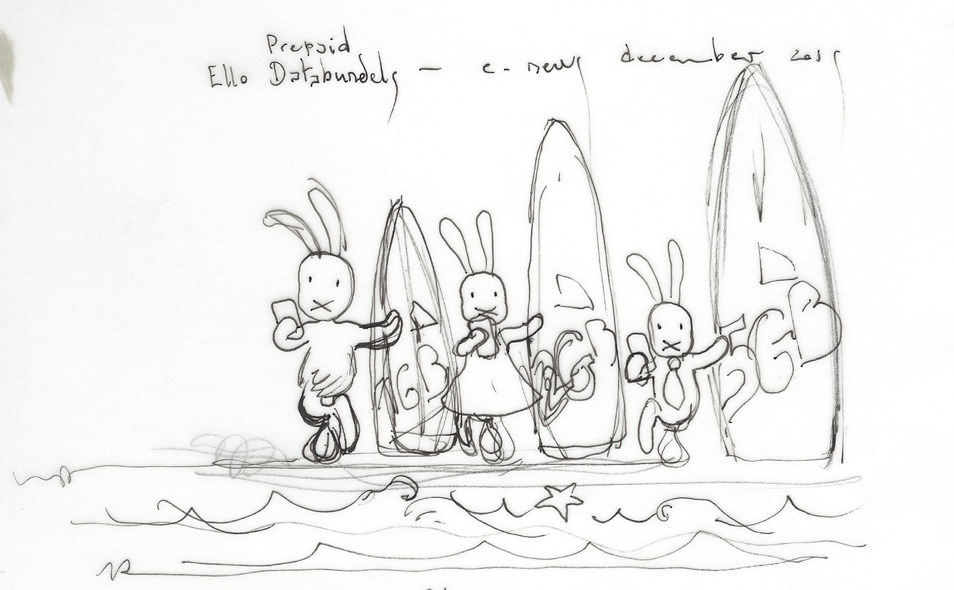 Prepaid
Ello Databundels – e-news december 2015
1GB
2GB
5GB